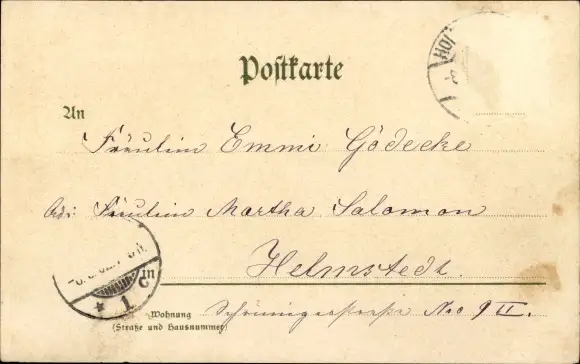 Postkarte
An
Fräulein Emmi Gödecke
Adr: Fräulein Martha Salomon
in
Helmstedt.
Wohnung
(Straße und Hausnummer)
Schöningerstraße No 9 II.
HOI
* 1 c